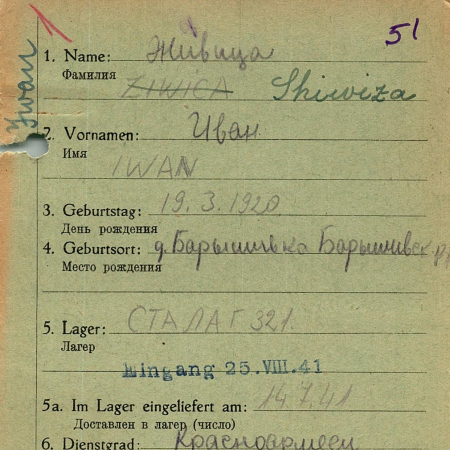 51
Iwan
1. Name: Живица
Фамилия
ZIWICA Shiwiza
2. Vornamen: Иван
Имя
IWAN
3. Geburtstag: 19.3.1920
День рождения
4. Geburtsort: д. Барышивка Барышивск. р.
Место рождения
5. Lager: СТАЛАГ 321.
Лагер
Eingang 25.VIII.41
5a. Im Lager eingeliefert am: 14.7.41
Доставлен в лагер (число)
6. Dienstgrad: Красноармеец